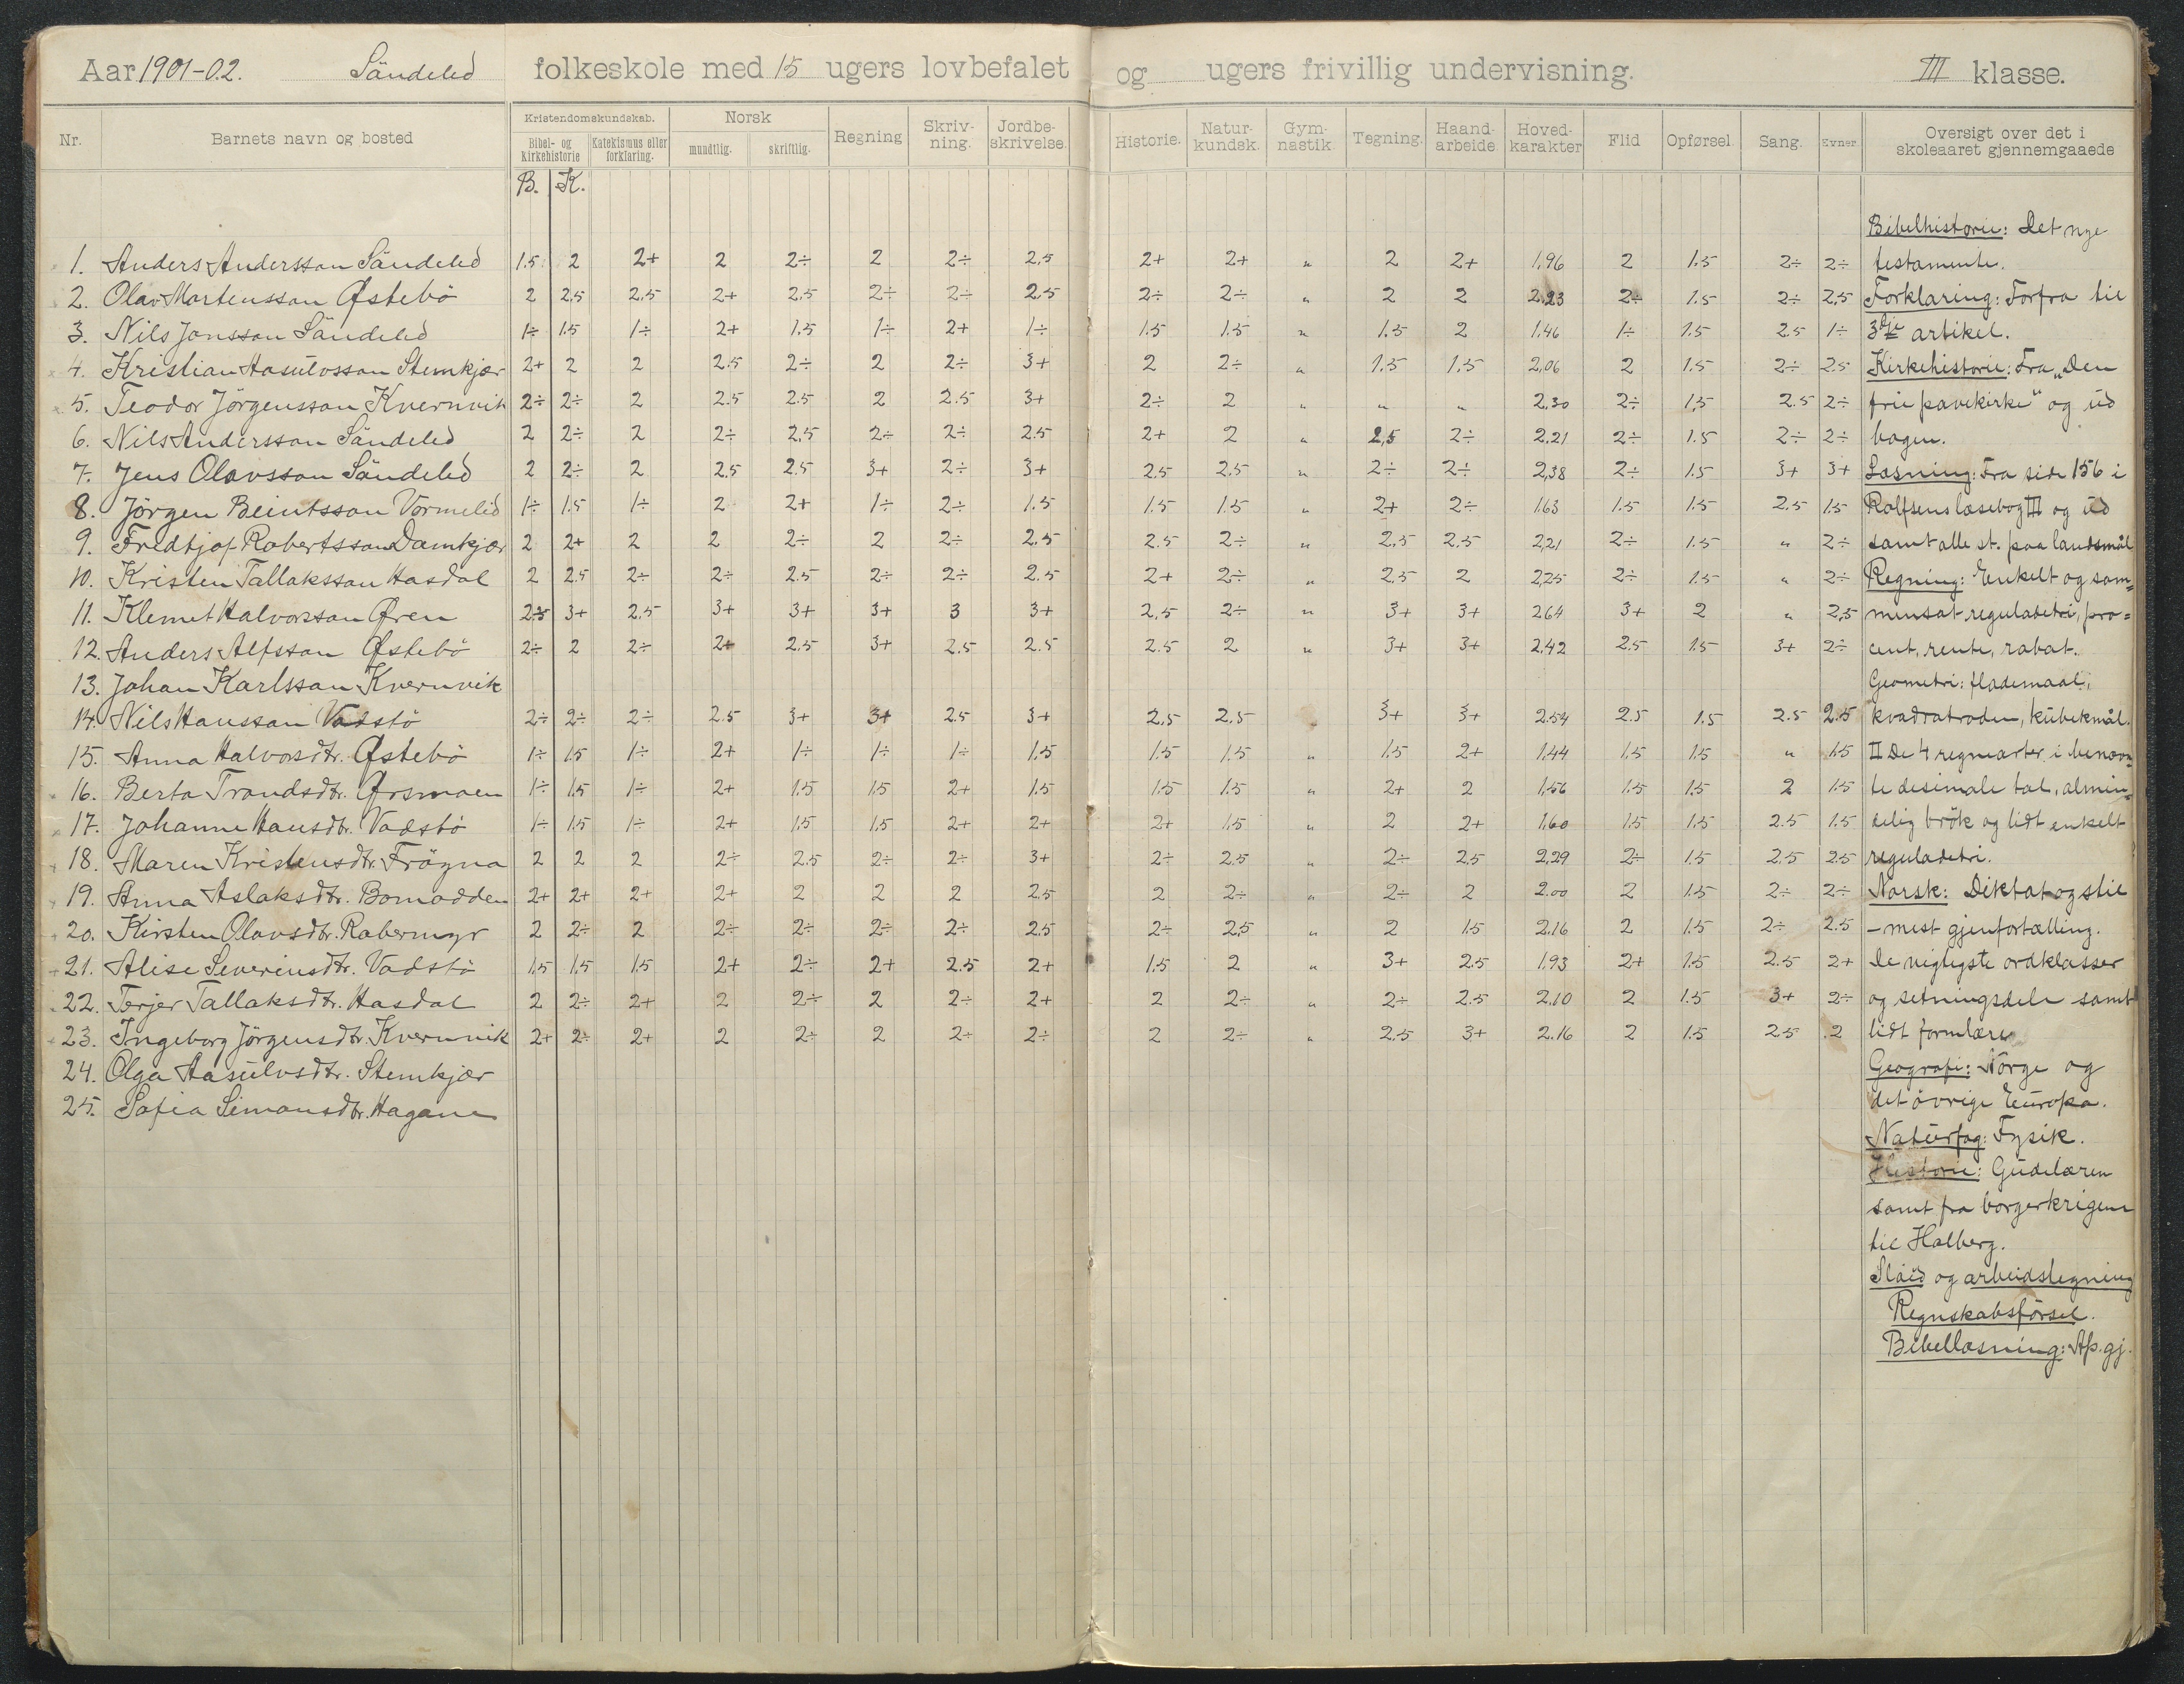 Aar 1901-02. Söndeled folkeskole med 15 ugers lovbefalet og ugers frivillig undervisning. III klasse.
Nr. Barnets navn og bosted Kristendomskundskab. Bibel- og kirkehistorie Katekismus eller forklaring. Norsk mundtlig. skriftlig. Regning Skriv-ning. Jordbe-skrivelse. Historie. Natur-kundsk. Gym-nastik. Tegning. Haand-arbeide Hoved-karakter Flid Opførsel. Sang. Evner. Oversigt over det i skoleaaret gjennemgaaede
B. K.
Bibelhistorie: Det nye
1. Anders Andersson Söndeled 1.5 2 2+ 2 2÷ 2 2÷ 2,5 2+ 2+ " 2 2+ 1,96 2 1.5 2÷ 2÷ testamente.
2. Olav Mortensson Østebö 2 2,5 2,5 2+ 2,5 2÷ 2÷ 2,5 2÷ 2÷ " 2 2 2,23 2÷ 1.5 2÷ 2,5 Forklaring: Forfra til
3. Nils Jonsson Söndeled 1÷ 1.5 1÷ 2+ 1.5 1÷ 2+ 1÷ 1.5 1.5 " 1.5 2 1.46 1÷ 1.5 2.5 1÷ 3dje artikel.
4. Kristian Aasulvsson Stemkjær 2+ 2 2 2.5 2÷ 2 2÷ 3+ 2 2÷ " 1.5 1.5 2,06 2 1.5 2÷ 2.5 Kirkehistorie: Fra „Den
5. Teodor Jörgensson Kvernvik 2÷ 2÷ 2 2.5 2.5 2 2.5 3+ 2÷ 2 " " " 2.30 2÷ 1,5 2.5 2÷ frie pavekirke" og ud
6. Nils Andersson Söndeled 2 2÷ 2 2÷ 2,5 2÷ 2÷ 2.5 2+ 2 " 2,5 2÷ 2.21 2÷ 1.5 2÷ 2÷ bogen.
7. Jens Olavsson Söndeled 2 2÷ 2 2.5 2.5 3+ 2÷ 3+ 2.5 2,5 " 2÷ 2÷ 2,38 2÷ 1.5 3+ 3+ Læsning: Fra side 156 i
8. Jörgen Beintsson Vormelid 1÷ 1.5 1÷ 2 2+ 1÷ 2÷ 1.5 1.5 1.5 " 2+ 2÷ 1.63 1.5 1.5 2.5 1.5 Rolfsens læsebog III og ud
9. Fredtjof Robertsson Damkjær 2 2+ 2 2 2÷ 2 2÷ 2.5 2.5 2÷ " 2,5 2,5 2,21 2÷ 1.5 " 2÷ samt alle st. paa landsmål
10. Kristen Tallaksson Hasdal 2 2.5 2÷ 2÷ 2.5 2÷ 2÷ 2.5 2+ 2÷ " 2,5 2 2,25 2÷ 1.5 " 2÷ Regning: Enkelt og sam=
11. Klemet Halvorsson Øren 2.5 3+ 2.5 3+ 3+ 3+ 3 3+ 2,5 2÷ " 3+ 3+ 2.64 3+ 2 " 2,5 mensat reguladetri, pro=
12. Anders Alfsson Østebö 2÷ 2 2÷ 2+ 2,5 3+ 2.5 2.5 2.5 2 " 3+ 3+ 2,42 2.5 1.5 3+ 2÷ cent, rente, rabat.
13. Johan Karlsson Kvernvik Geometri: flademaal,
14. Nils Hansson Vadstö 2÷ 2÷ 2÷ 2.5 3+ 3+ 2.5 3+ 2,5 2,5 " 3+ 3+ 2.54 2.5 1.5 2.5 2.5 kvadratroden, kubekmål.
15. Anna Halvorsdtr. Østebö 1÷ 1.5 1÷ 2+ 1÷ 1÷ 1÷ 1,5 1.5 1,5 " 1.5 2+ 1.44 1.5 1.5 " 1.5 II De 4 regnearter i benævn=
16. Berta Trondsdtr. Ørsmoen 1÷ 1.5 1÷ 2+ 1.5 1.5 2+ 1.5 1.5 1.5 " 2+ 2 1,56 1.5 1.5 2 1.5 te desimale tal, almin=
17. Johanne Hansdtr. Vadstö 1÷ 1.5 1÷ 2+ 1.5 1.5 2+ 2+ 2+ 1.5 " 2 2+ 1.60 1.5 1.5 2.5 1.5 delig brök og lidt enkelt
18. Maren Kristensdtr. Frögna 2 2 2 2÷ 2.5 2÷ 2÷ 3+ 2÷ 2.5 " 2÷ 2.5 2,29 2÷ 1.5 2.5 2.5 reguladetri.
19. Anna Aslaksdtr. Bomodden 2+ 2+ 2+ 2+ 2 2 2 2.5 2 2÷ " 2÷ 2 2.00 2 1.5 2÷ 2÷ Norsk: Diktat og stil
20. Kirsten Olavsdtr. Robermyr 2 2÷ 2 2÷ 2÷ 2÷ 2÷ 2.5 2÷ 2,5 " 2 1.5 2.16 2 1.5 2÷ 2.5 – mest gjenfortælling.
21. Alise Severinsdtr. Vadstö 1.5 1.5 1.5 2+ 2÷ 2+ 2.5 2+ 1.5 2 " 3+ 2.5 1.93 2+ 1.5 2.5 2+ De vigtigste ordklasser
22. Terjer Tallaksdtr. Hasdal 2 2÷ 2+ 2 2÷ 2 2÷ 2+ 2 2÷ " 2÷ 2.5 2.10 2 1.5 3+ 2÷ og setningsdele samt
23. Ingeborg Jörgensdtr. Kvernvik 2+ 2÷ 2+ 2 2÷ 2 2÷ 2÷ 2 2÷ " 2.5 3+ 2.16 2 1.5 2.5 2 lidt formlære
24. Olga Aasulvsdtr. Stemkjær Geografi: Norge og
25. Sofia Simonsdtr. Hagane det övrige Europa.
Naturfag: Fysik.
Historie: Gudelæren
samt fra borgerkrigene
til Holberg.
Sløid og arbeidstegning
Regnskabsförsel.
Bibellæsning: Ap. gj.